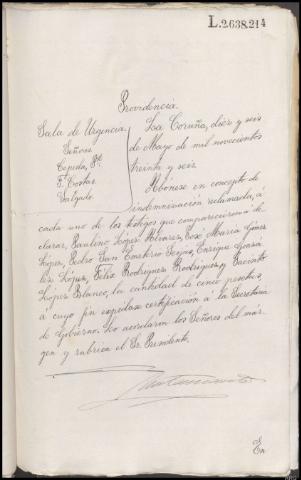 L.2.638.214
Providencia
Sala de Urgencia
Señores
Cepeda, Pte
F. Cortés
Salgado
La Coruña, diez y seis
de Mayo de mil novecientos
treinta y seis
Abónese en concepto de
indemnización reclamada, á
cada uno de los testigos que comparecieron á de
clarar, Paulino López Alvarez, José María Gómez
López, Pedro San Emeterio, Enrique Gonzá
lez López, Félix Rodríguez Rodríguez, y Jacinto
López Blanco, la cantidad de cinco pesetas,
á cuyo fin expídase certificación á la Secretaría
de Gobierno. Lo acordaron los Señores del már
gen y rubrica el Sr. Presidente.
En